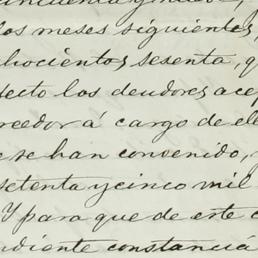 los meses siguientes,
chocientos sesenta, q
fecto los deudores ace
reedor á cargo de ell
e se han convenido,
setenta y cinco mil
Y para que de este c
ndiente constancia